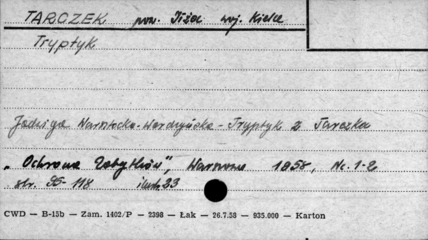 TARCZEK pow. Iłża woj. Kielce
Tryptyk
Jadwiga - Tryptyk z Tarczka
"Ochrona Zabytków", Warszawa 1958, Nr. 1-2
str. 95-118 ilustr. 23
CWD — B-15b — Zam. 1402/P — 2398 — Łak — 26.7.58 — 935.000 — Karton